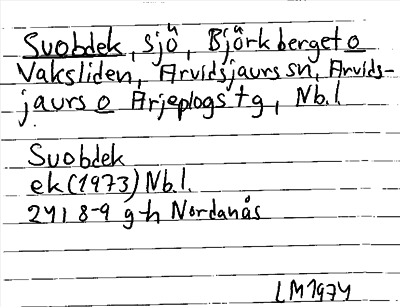 Suobdek, sjö, Björkberget o
Vaksliden, Arvidsjaurs sn, Arvids-
jaurs o Arjeplogs tg, Nb.l
Suobdek
ek (1973) Nb.l.
24I 8-9 g-h Nordanås
LM 1974